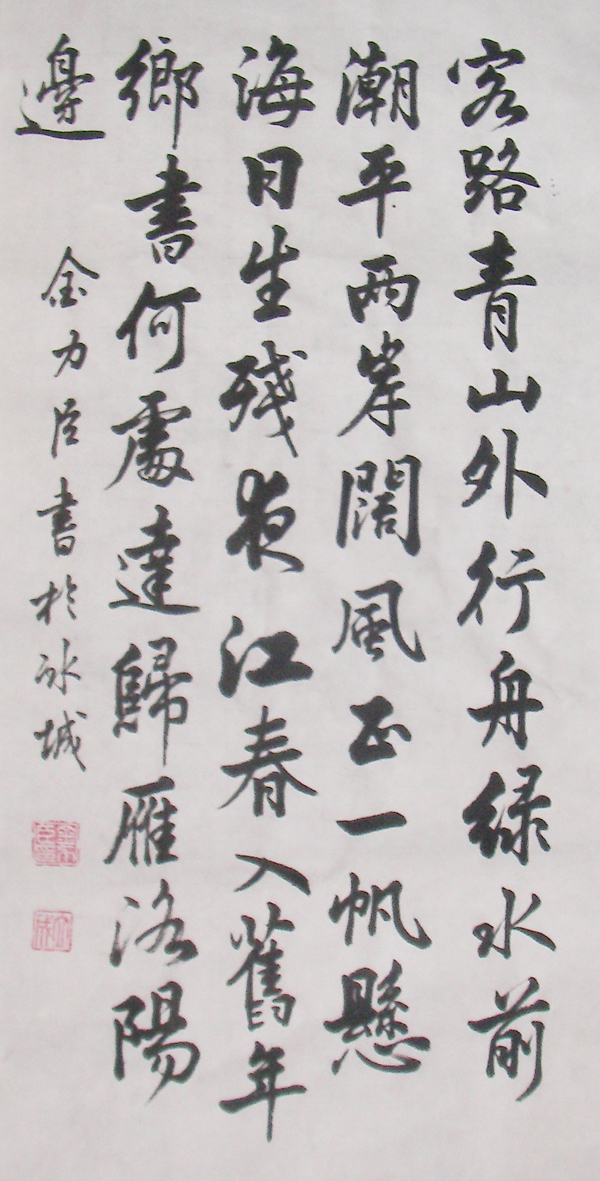 客路青山外行舟緑水前
潮平兩岸闊風正一帆懸
海日生殘夜江春入舊年
鄉書何處達歸雁洛陽
邊
金力臣書於冰城